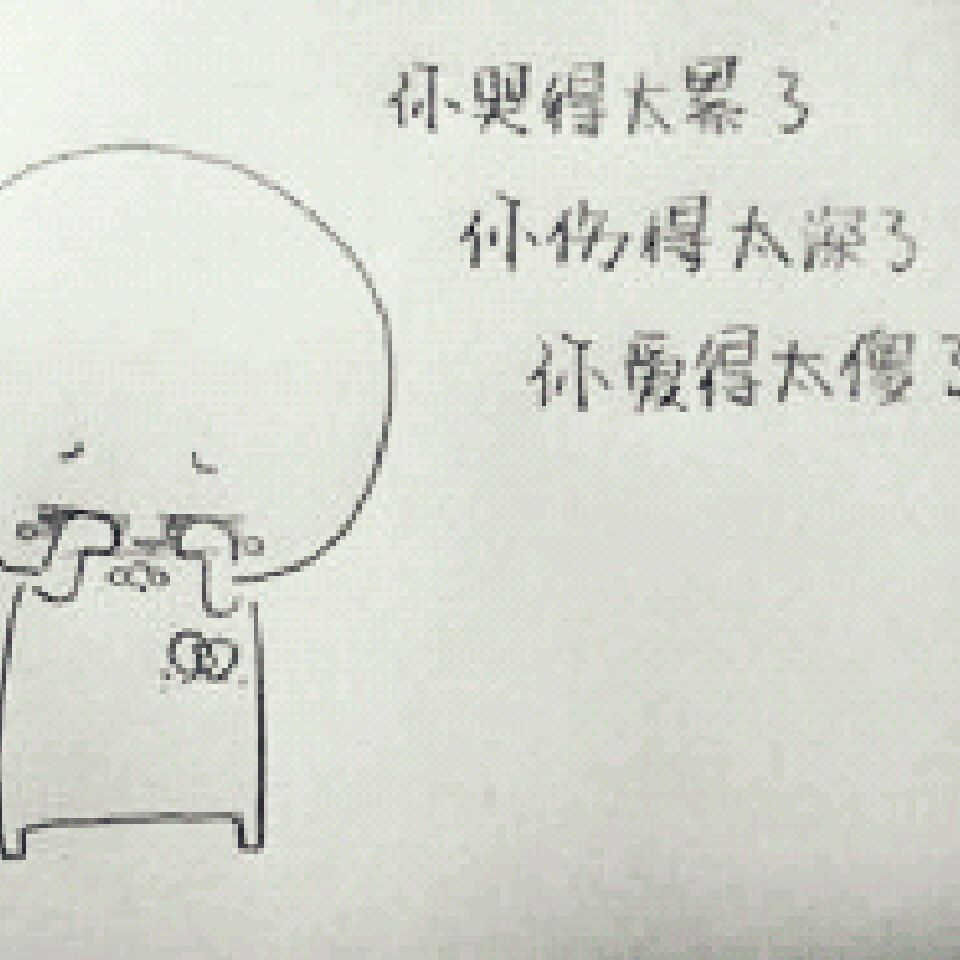 你哭得太累了
你伤得太深了
你爱得太傻了